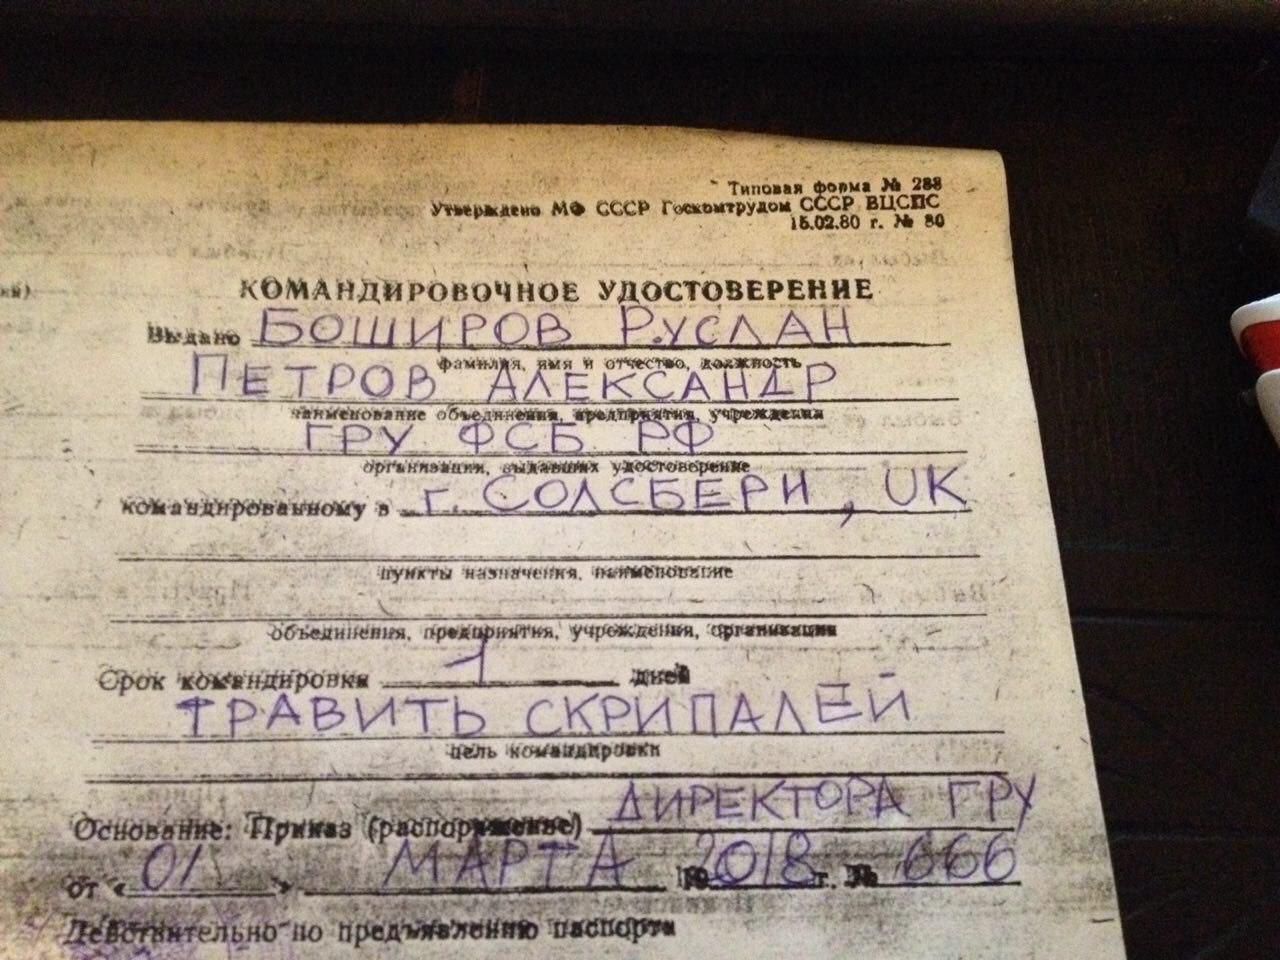 Типовая форма № 288
Утверждено МФ СССР Госкомтрудом СССР ВЦСПС
15.02.80 г. № 80
КОМАНДИРОВОЧНОЕ УДОСТОВЕРЕНИЕ
Выдано БОШИРОВ РУСЛАН
фамилия, имя и отчество, должность
ПЕТРОВ АЛЕКСАНДР
наименование объединения, предприятия, учреждения
ГРУ ФСБ РФ
организации, выдавших удостоверение
командированному в г. СОЛСБЕРИ, UK
пункты назначения, наименование
объединения, предприятия, учреждения, организации
Срок командировки 1 дней
ТРАВИТЬ СКРИПАЛЕЙ
цель командировки
Основание: Приказ (распоряжение) ДИРЕКТОРА ГРУ
от « 01 » МАРТА 2018 г. № 666
Действительно по предъявлению паспорта